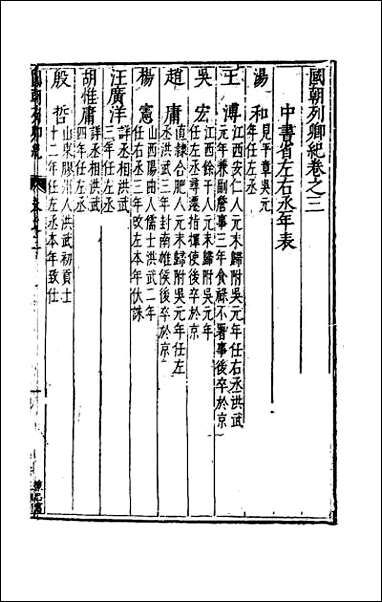 國朝列卿紀卷之三
中書省左右丞年表
湯和 見平章吳元
年任左丞
王溥 江西安仁人元末歸附吳元年任右丞洪武
元年兼副詹事三年食祿不署事後卒於京
吳宏 江西餘干人元末歸附吳元年
任左丞尋遷指揮使後卒於京
趙庸 直隸合肥人元末歸附吳元年任左
丞洪武三年封南雄侯後卒於京
楊憲 山西陽曲人儒士洪武二年
任右丞三年改左本年伏誅
汪廣洋 詳丞相洪武
三年任左丞
胡惟庸 詳丞相洪武
四年任左丞
殷哲 山東滕州人洪武初貢士
十二年任左丞本年致仕